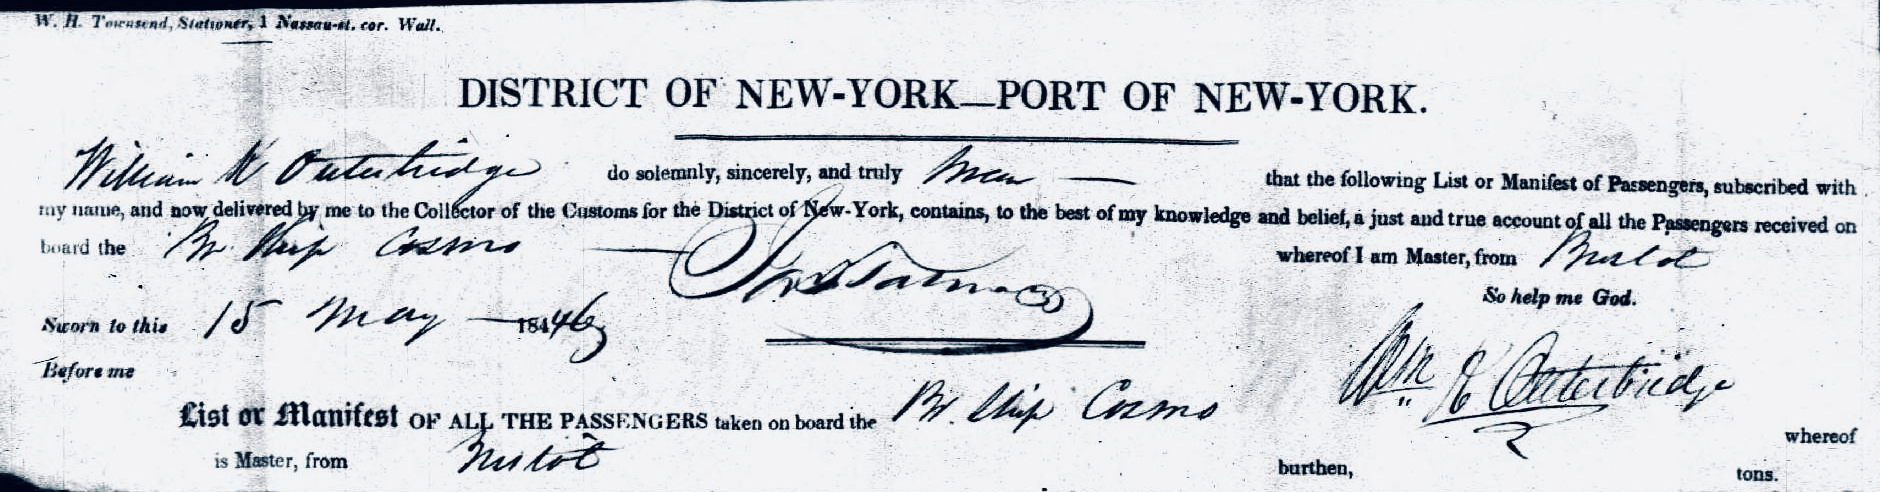 W. H. Townsend, Stationer, 1 Nassau-st. cor. Wall.
DISTRICT OF NEW-YORK—PORT OF NEW-YORK.
William K Outerbridge do solemnly, sincerely, and truly swear — that the following List or Manifest of Passengers, subscribed with
my name, and now delivered by me to the Collector of the Customs for the District of New-York, contains, to the best of my knowledge and belief, a just and true account of all the Passengers received on
board the Br. Ship Cosmo whereof I am Master, from Bristol
So help me God.
Sworn to this 15 May — 1846
Before me
Wm K Outerbridge
List or Manifest OF ALL THE PASSENGERS taken on board the Br. Ship Cosmo whereof
is Master, from Bristol burthen, tons.